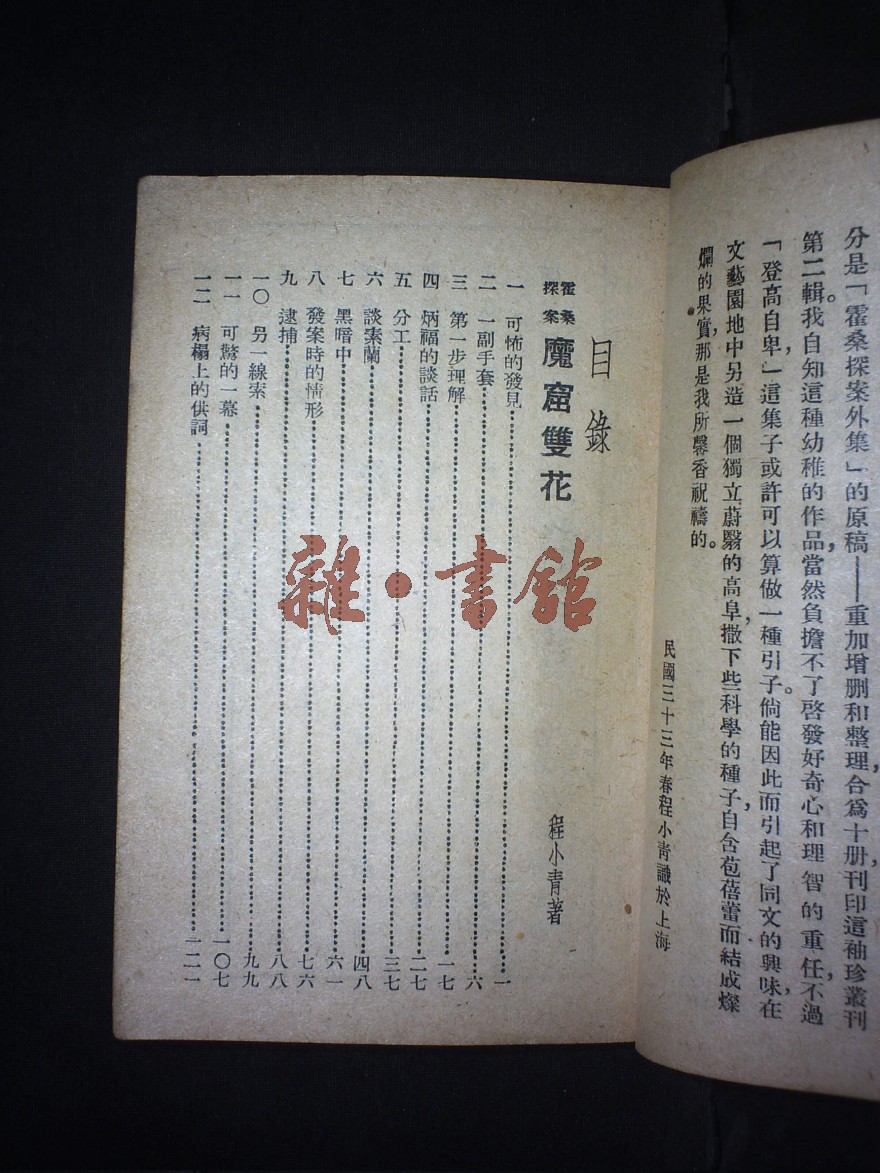 分是「霍桑探案外集」的原稿——重加增删和整理，合爲十册刊印這袖珍叢刊
第二輯。我自知這種幼稚的作品，當然負擔不了啓發好奇心和理智的重任，不過
「登高自卑」，這集子或許可以算做一種引子。倘能因此而引起了同文的興味，在
文藝園地中另造一個獨立蔚翳的高阜，撒下些科學的種子，自含苞蓓蕾而結成燦
爛的果實，那是我所馨香祝禱的。
民國三十三年春程小青識於上海
目錄
霍桑探案 魔窟雙花 程小青著
一 可怖的發見……一
二 一副手套……六
三 第一步理解……一七
四 炳福的談話……二七
五 分工……三七
六 談素蘭……四八
七 黑暗中……六一
八 發案時的情形……七六
九 逮捕……八八
一〇 另一線索……九九
一一 可驚的一幕……一〇七
一二 病榻上的供詞……一二一
雜·書館